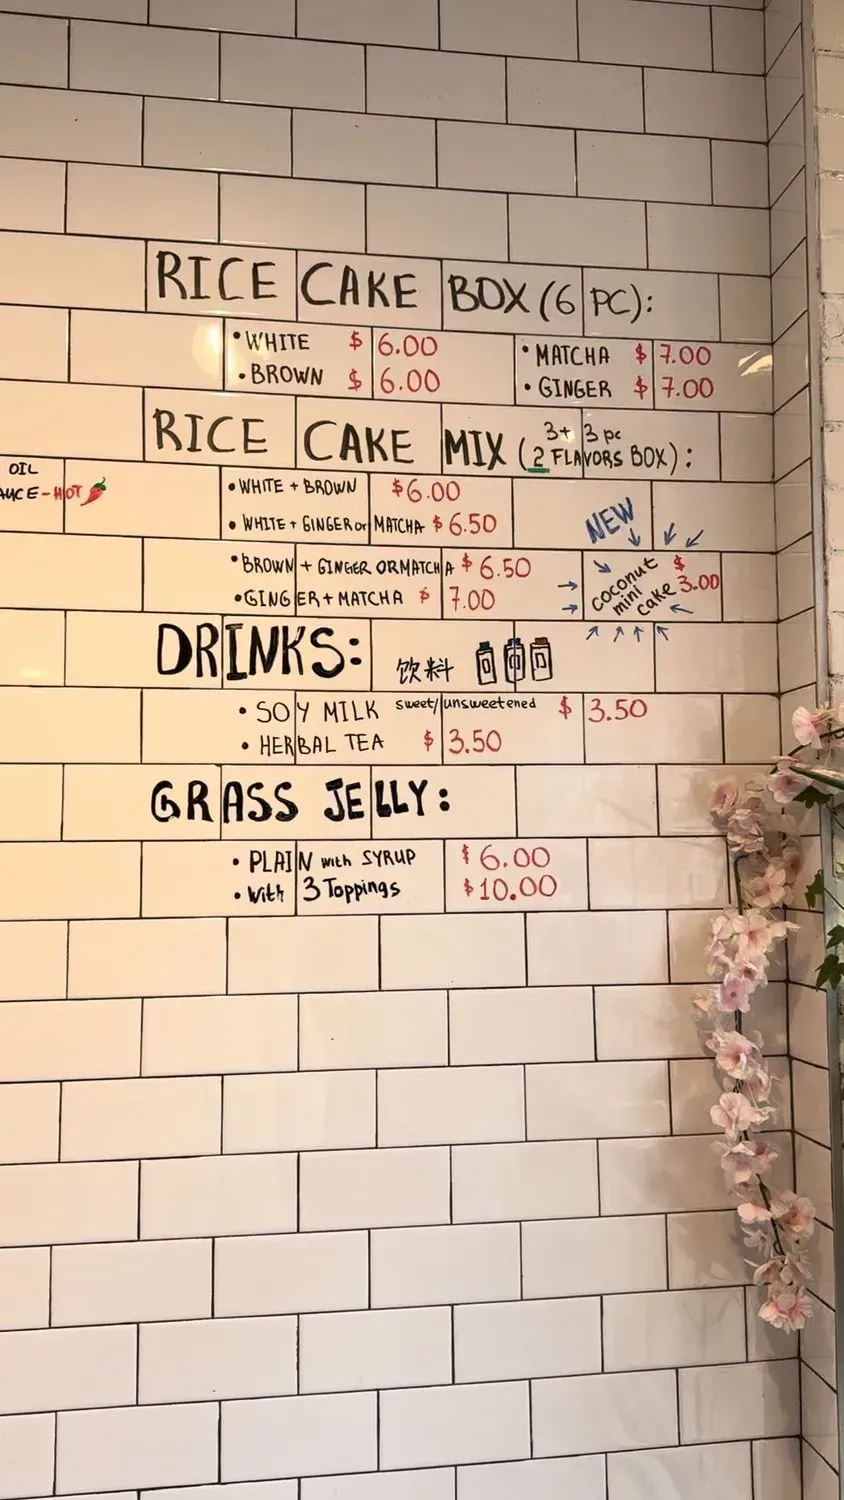 RICE CAKE BOX (6 PC):
• WHITE $ 6.00
• BROWN $ 6.00
• MATCHA $ 7.00
• GINGER $ 7.00
RICE CAKE MIX (3+3 pc 2 FLAVORS BOX):
• WHITE + BROWN $6.00
• WHITE + GINGER or MATCHA $ 6.50
• BROWN + GINGER OR MATCHA $ 6.50
• GINGER + MATCHA $ 7.00
OIL
-HOT
NEW
coconut
mini
cake
$
3.00
DRINKS: 饮料
• SOY MILK sweet/unsweetened $ 3.50
• HERBAL TEA $ 3.50
GRASS JELLY:
• PLAIN with SYRUP $ 6.00
• With 3 Toppings $10.00